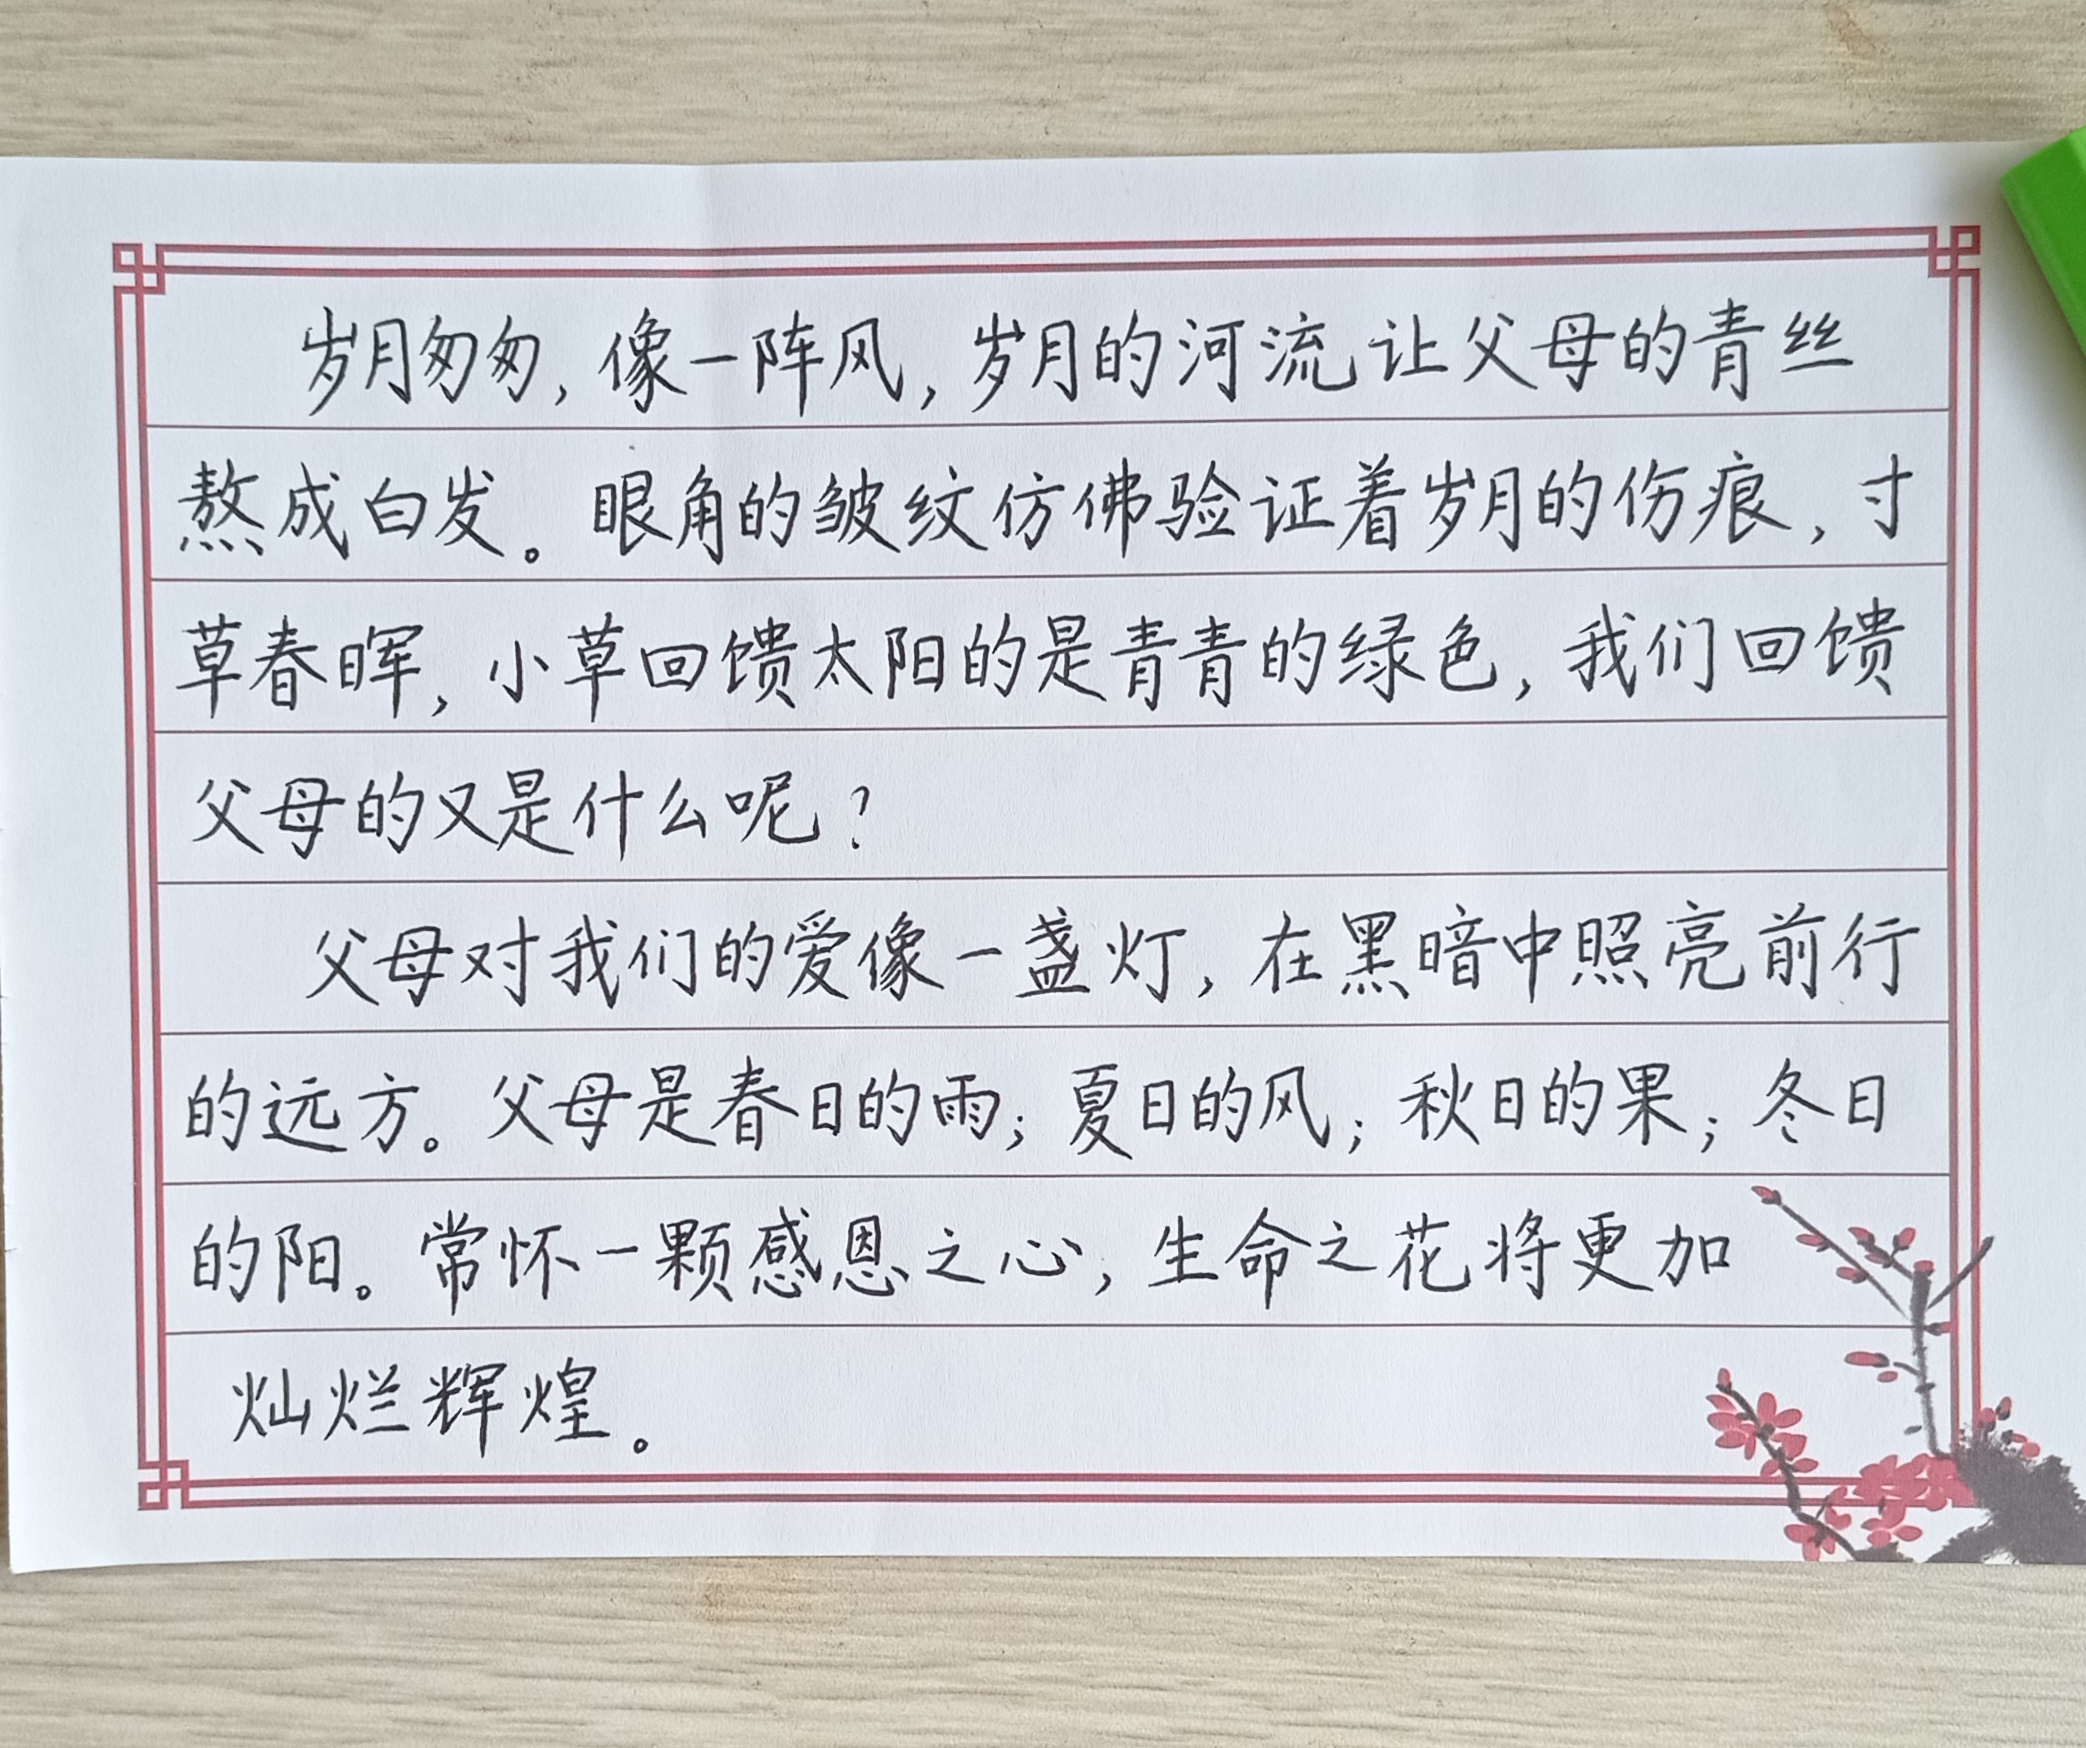 岁月匆匆，像一阵风，岁月的河流让父母的青丝
熬成白发。眼角的皱纹仿佛验证着岁月的伤痕，寸
草春晖，小草回馈太阳的是青青的绿色，我们回馈
父母的又是什么呢？
父母对我们的爱像一盏灯，在黑暗中照亮前行
的远方。父母是春日的雨；夏日的风；秋日的果；冬日
的阳。常怀一颗感恩之心，生命之花将更加
灿烂辉煌。